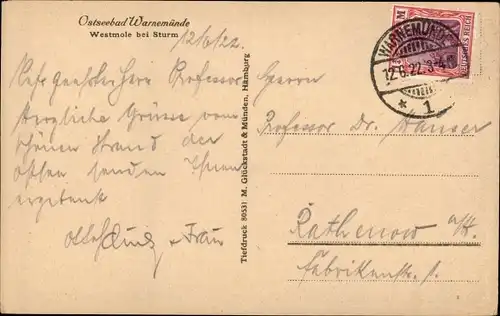 Ostseebad Warnemünde
Westmole bei Sturm
12/6/22.
Sehr geehrter Herr Professor
Herzliche Grüsse vom
schönen Strand der
Ostsee senden Ihnen
ergebenst
Frau
Tiefdruck 80531 M. Glückstadt & Münden, Hamburg
WARNEMÜNDE
12.6.22.3-4
* 1
DEUTSCHES REICH
M
Herrn
Professor Dr.
Rathenow a/H.
Fabrikenstr.